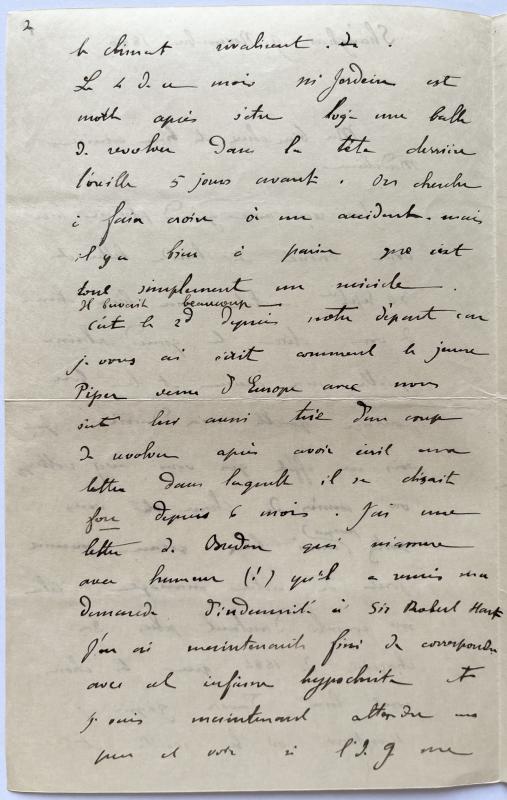 2
le climat rivalisent. de.
Le 4 de ce mois Mr Jordein est
mort après s'être logé une balle
de revolver dans la tête derrière
l'oreille 5 jours avant. On cherche
à faire croire à un accident. mais
il y a bien à parier que c'est
tout simplement un suicide.
Il buvait beaucoup
C'est le 2d depuis notre départ car
je vous ai écrit comment le jeune
Piper venu d'Europe avec nous
s'est lui aussi tué d'un coup
de revolver après avoir écrit une
lettre dans laquelle il se disait
fou depuis 6 mois. J'ai une
lettre de Bredon qui m'assure
avec humeur (!) qu'il a remis ma
demande d'indemnité à Sir Robert Hart
J'en ai maintenant fini de correspondre
avec cet infâme hypocrite et
je vais maintenant attendre un
peu et voir si l'I. G me